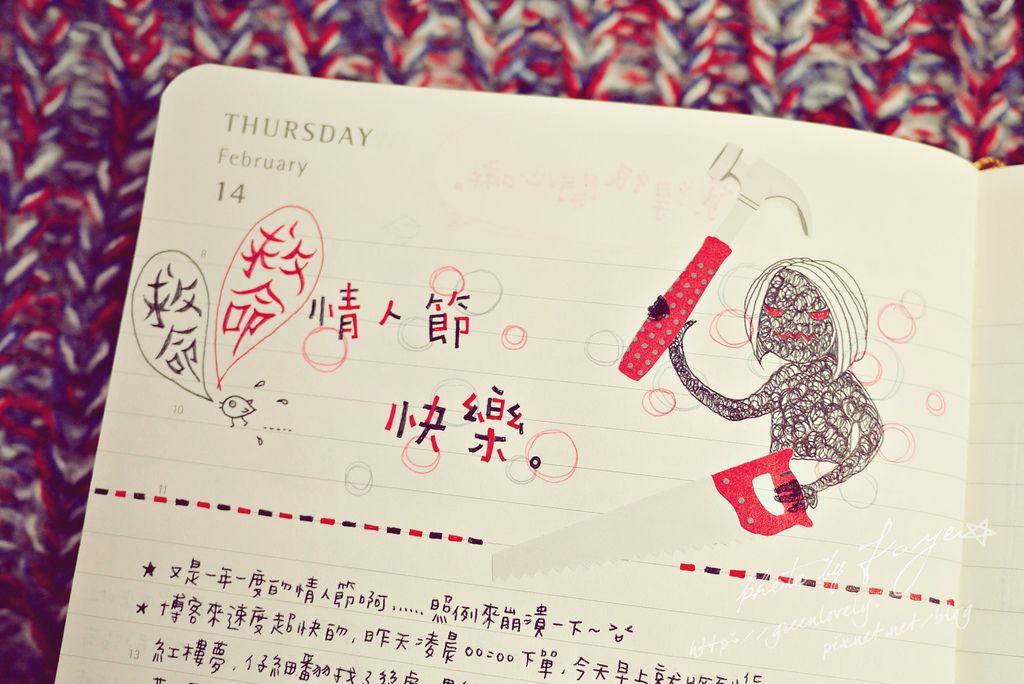 THURSDAY
February
14
8
救命
救命
情人節
快樂。
10
11
★ 又是一年一度的情人節啊......照例來崩潰一下~
★ 博客來速度超快的,昨天凌晨00:00下單,今天早上就
13
紅樓夢,仔細翻找了
photo by Faye
http://greenlovely.
pixnet.net/blog